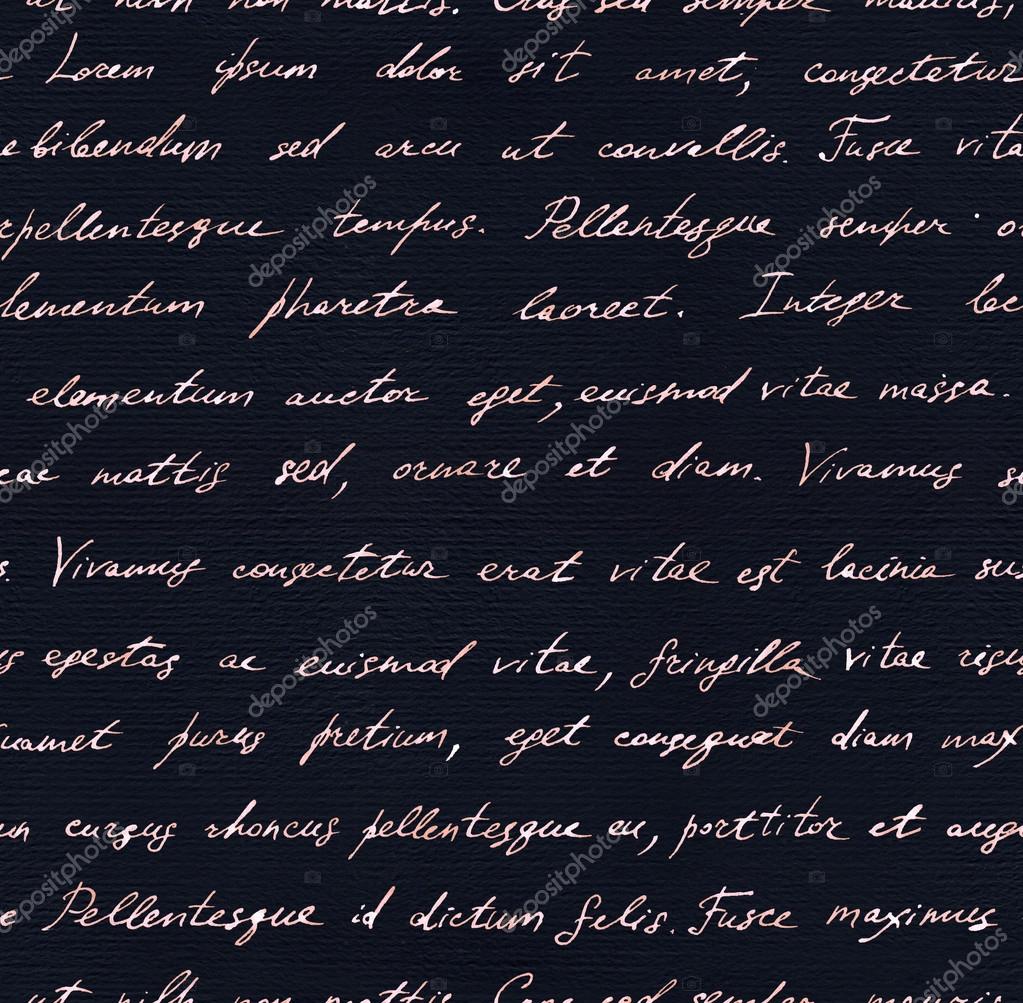 non mattis. Cras sed semper mauris,
Lorem ipsum dolor sit amet, consectetur
bibendum sed arcu ut convallis. Fusce vita
pellentesque tempus. Pellentesque semper
lementum pharetra laoreet. Integer
elementum auctor eget, euismod vitae massa.
ac mattis sed, ornare et diam. Vivamus
s. Vivamus consectetur erat vitae est lacinia sus
egestas ac euismod vitae, fringilla vitae risus
amet purus pretium, eget consequat diam max
cursus rhoncus pellentesque eu, porttitor et augu
Pellentesque id dictum felis. Fusce maximus
ut nibh non mattis. Cras sed semper mauris
depositphotos